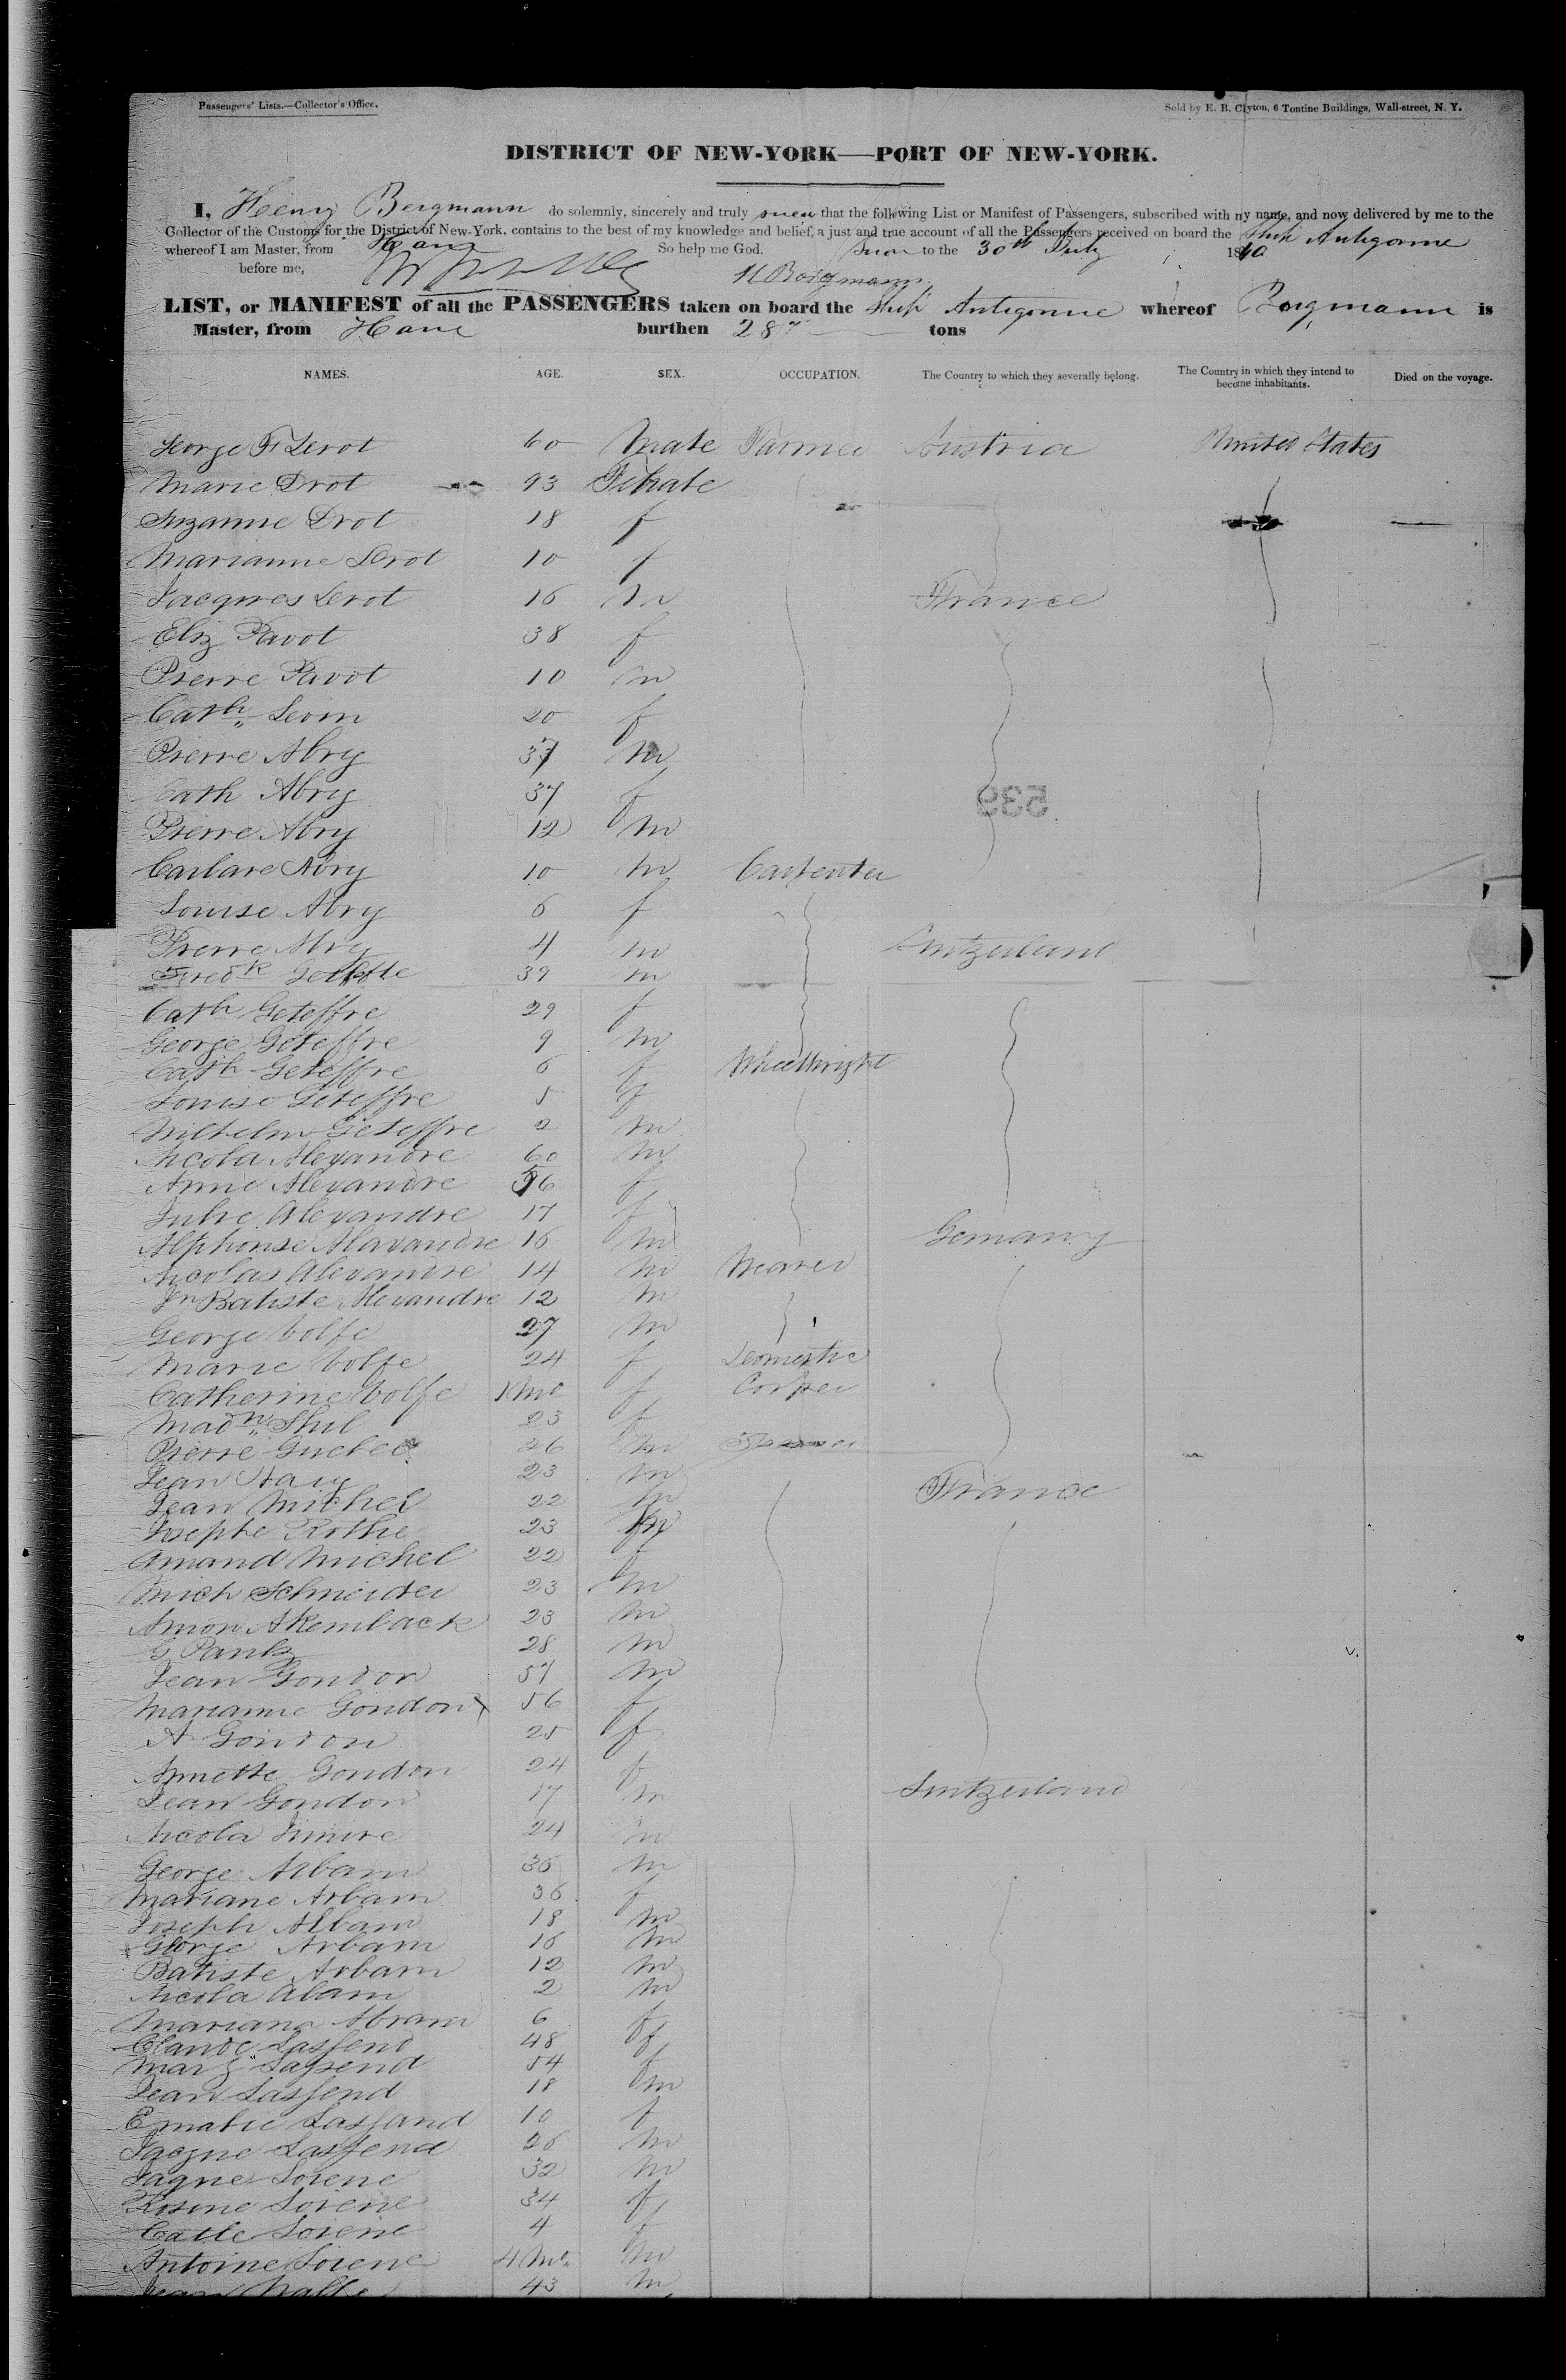 Passengers' Lists.—Collector's Office.
Sold by E. B. Clyton, 6 Tontine Buildings, Wall-street, N. Y.
DISTRICT OF NEW-YORK—PORT OF NEW-YORK.
I, Henry Bergmann do solemnly, sincerely and truly swear that the following List or Manifest of Passengers, subscribed with my name, and now delivered by me to the
Collector of the Customs for the District of New-York, contains to the best of my knowledge and belief, a just and true account of all the Passengers received on board the Ship Antigonne
whereof I am Master, from Havre So help me God. Sworn to the 30th July 1840
before me, H Bergmann
LIST, or MANIFEST of all the PASSENGERS taken on board the Ship Antigonne whereof Bergmann is
Master, from Havre burthen 287 tons
NAMES. AGE. SEX. OCCUPATION. The Country to which they severally belong. The Country in which they intend to become inhabitants. Died on the voyage.
George F Derot 60 Male Farmer Austria United States
Marie Drot 93 Female
Suzanne Drot 18 f
Marianne Drot 10 f
Jacques Derot 16 m France
Eliz Pavot 38 f
Pierre Pavot 10 m
Cath Leom 20 f
Pierre Abry 37 m
Cath Abry 37 f
539
Pierre Abry 12 m
Barbare Abry 10 m Carpenter
Louise Abry 6 f
Pierre Abry 4 m Switzerland
Fredk 39 m
Cath Geteffre 29 f
George Geteffre 9 m
Cath Geteffre 6 f Wheelwright
Louise Geteffre 5 f
Wilhelm Geteffre 2 m
Nicola Alexandre 60 m
Anne Alexandre 56 f
Julie Alexandre 17 f
Alphonse Alaxandre 16 m Germany
Nicolas Alexandre 14 m Weaver
Jn Batiste Alexandre 12 m
George Wolfe 27 m
Marie Wolfe 24 f Domestic
Catherine Wolfe 1 mo f Cooper
Madn Shil 23 f
Pierre Guebec 26 m
Jean Haig 23 m France
Jean Michel 22 m
Josephe Rothe 23 m
Amand Michel 22 f
Mich Schneider 23 m
Amon Akemback 23 m
G Pank 28 m
Jean Gondon 57 m
Marianne Gondon 56 f
A Gondon 25 f
Annette Gondon 24 f
Jean Gondon 17 m Switzerland
Nicola Simire 24 m
George Arbam 36 m
Mariane Arbam 36 f
Joseph Albam 18 m
George Arbam 16 m
Batiste Arbam 12 m
Nicola Abam 2 m
Mariana Abram 6 f
Claude Lassend 48 f
Marg Lassend 54 f
Jean Lassend 18 m
Ematie Lassand 10 f
Jacque Lassend 26 m
Jaque Lorene 32 m
Rosine Lorene 34 f
Catle Lorene 4 f
Antoine Lorene 4 Mo m
Jean 43 m